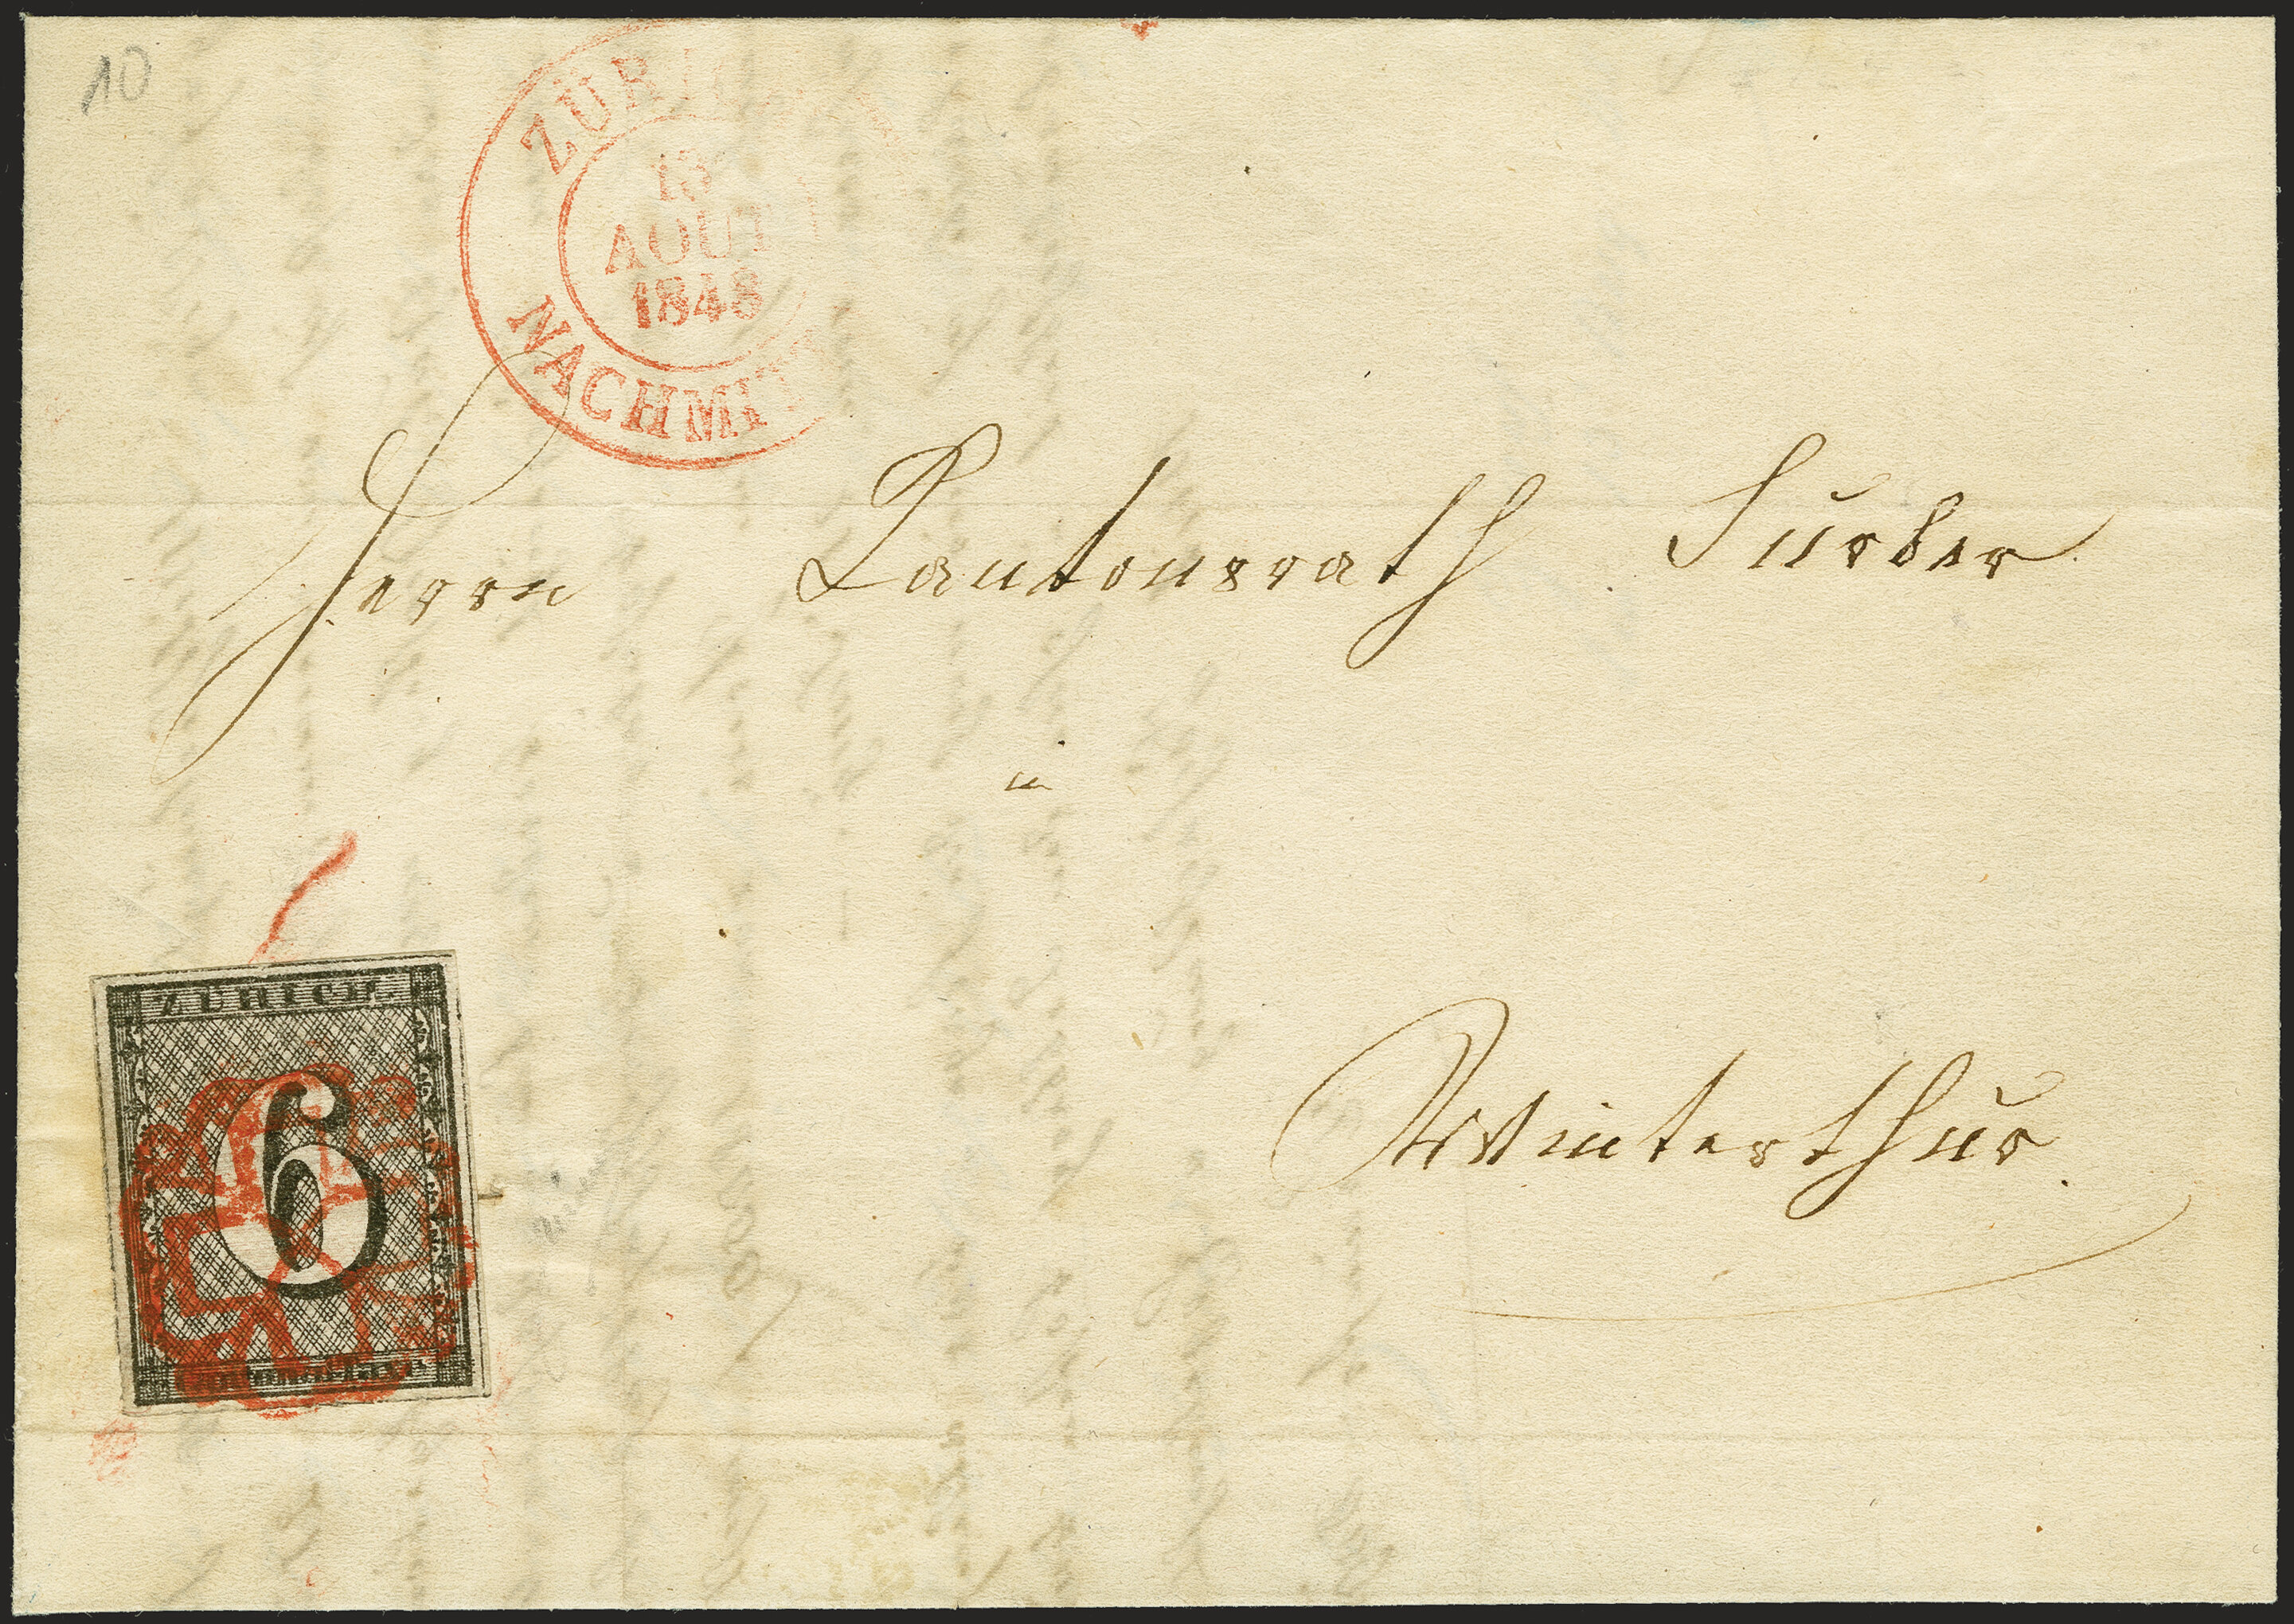 10
ZÜRICH
13
AOUT
1848
NACHMIT
Herrn Cantonsrath Surber
in
Winterthur.
ZÜRICH.
6